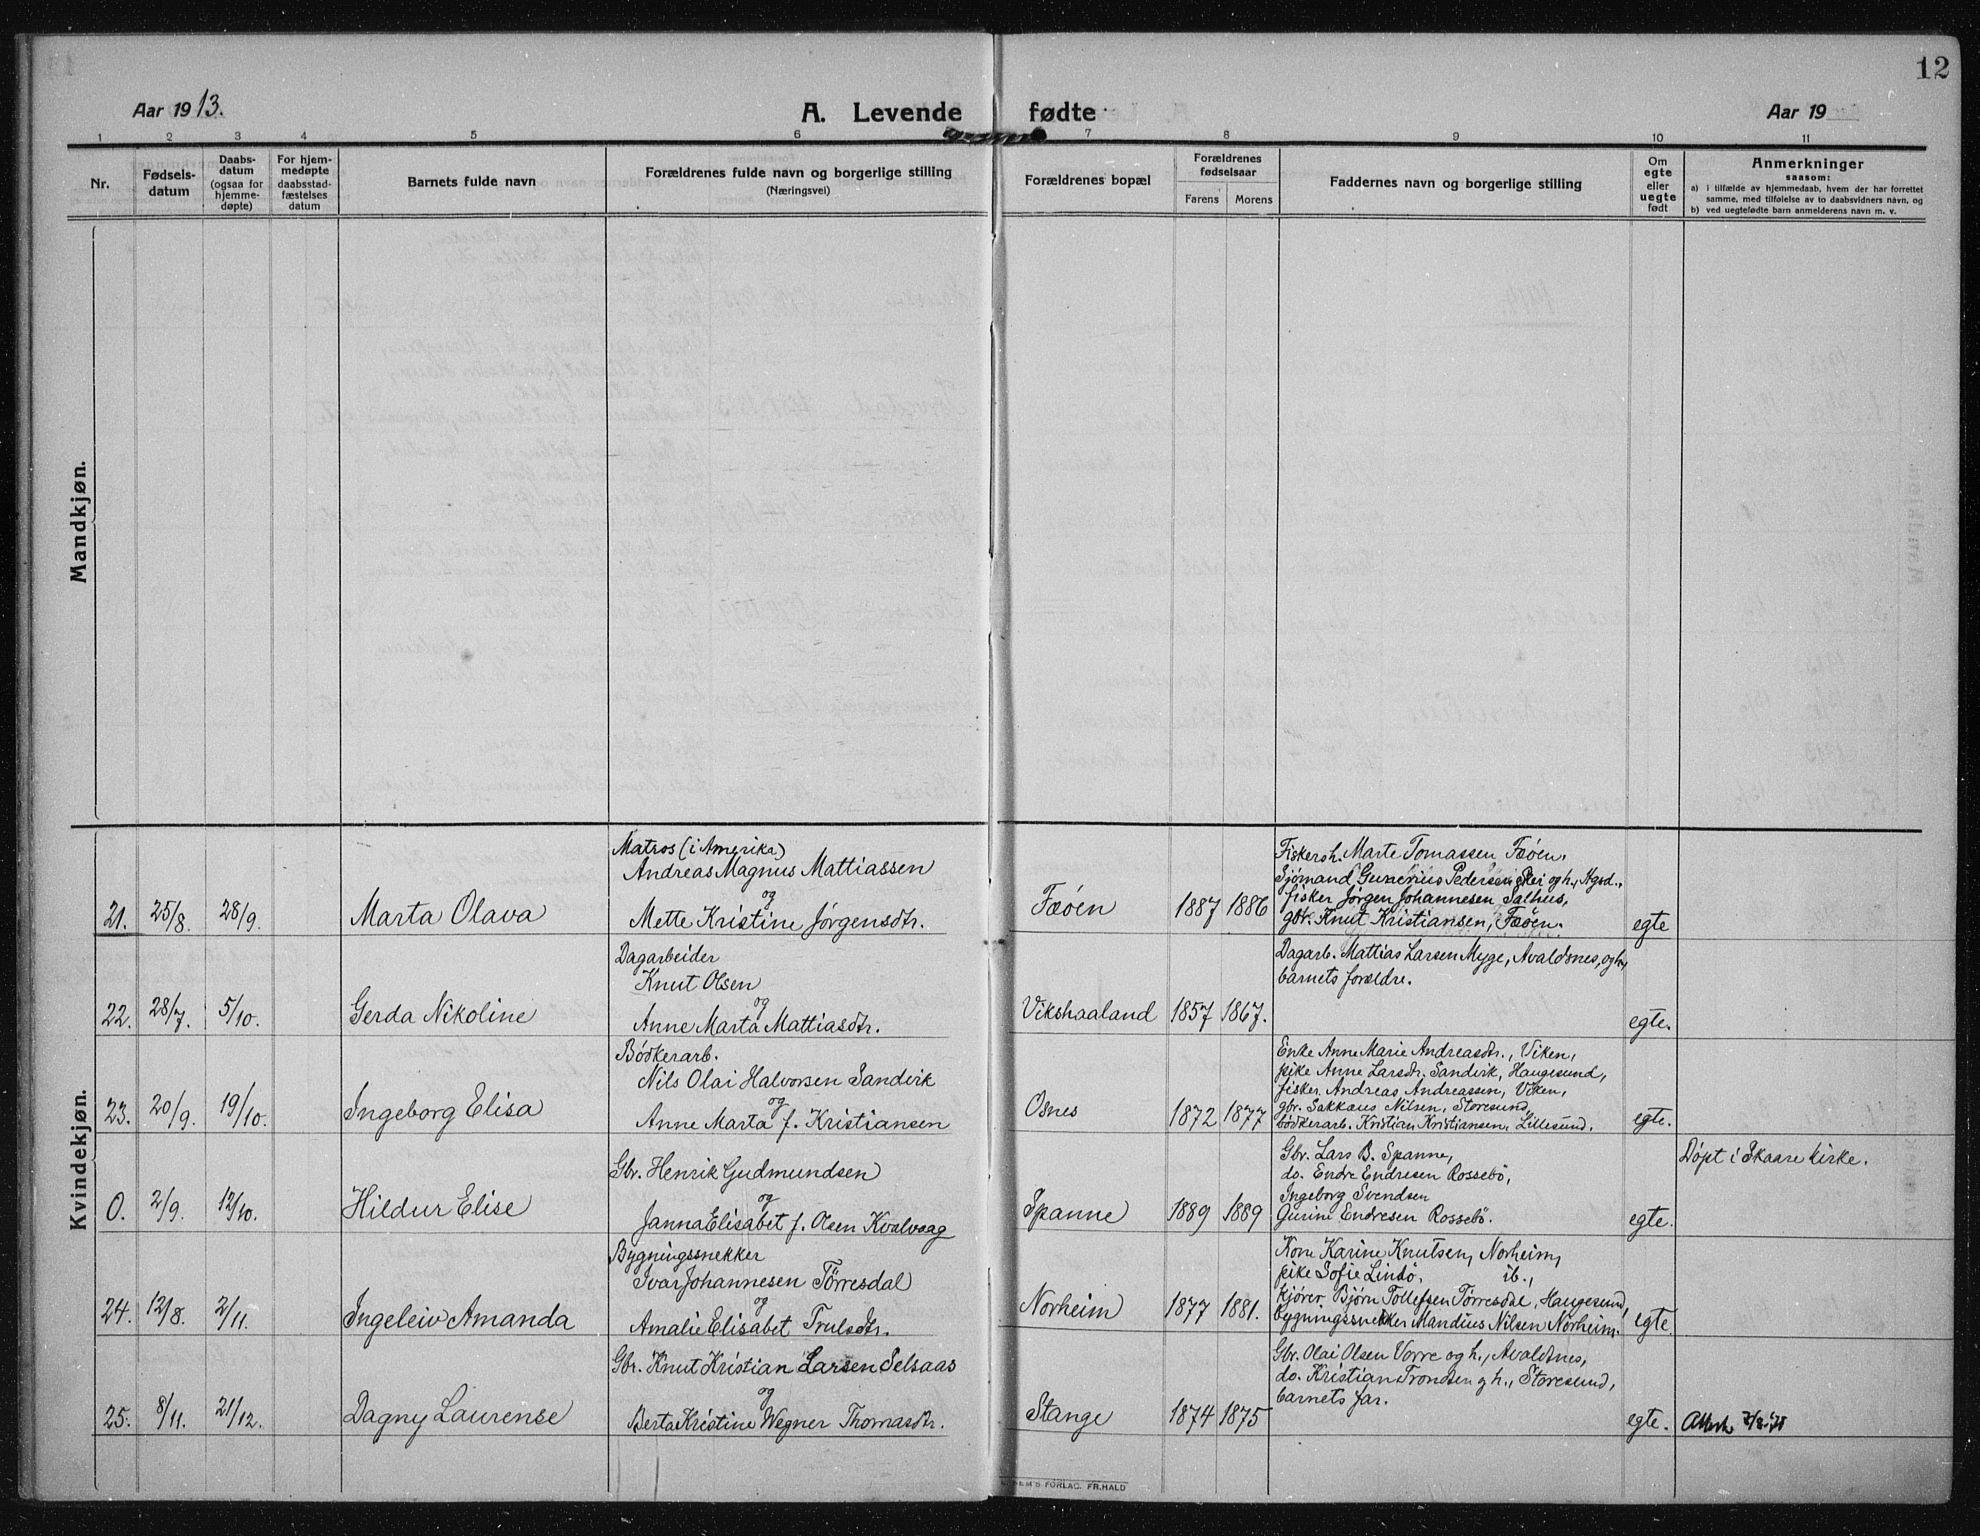 12
Aar 1913.
A. Levende fødte
Aar 19
1 2 3 4 5 6 7 8 9 10 11
Nr.
Fødsels-
datum
Daabs-
datum
(ogsaa for
hjemme-
døpte)
For hjem-
medøpte
daabsstad-
fæstelses
datum
Barnets fulde navn
Forældrenes fulde navn og borgerlige stilling
(Næringsvei)
Forældrenes bopæl
Forældrenes
fødselsaar
Farens Morens
Faddernes navn og borgerlige stilling
Om
egte
eller
uegte
født
Anmerkninger
saasom:
a) i tilfælde av hjemmedaab, hvem der har forrettet
samme, med tilføielse av to daabsvidners navn, og
b) ved uegtefødte barn anmelderens navn m. v.
Mandkjøn.
Kvindekjøn.
21. 25/8. 28/9. Marta Olava
Matros (i Amerika)
Andreas Magnus Mattiassen
og
Mette Kristine Jørgensdtr.
Fæøen 1887 1886
Fiskersh. Marte Tomassen Fæøen.
Sjömand Gunerius Pedersen og h., Hgsd.,
fisker Jörgen Johannesen Salhus,
gbr. Knut Kristiansen, Fæøen.
egte
22. 28/7. 5/10. Gerda Nikoline
Dagarbeider
Knut Olsen
og
Anne Marta Mattiasdtr.
Vikshaaland 1857 1867.
Dagarb. Mattias Larsen Myge, Avaldsnes, og h.,
barnets forældre.
egte.
23. 20/9. 19/10. Ingeborg Elisa
Bödkerarb.
Nils Olai Halvorsen Sandvik
og
Anne Marta f. Kristiansen
Osnes 1872 1877
Enke Anne Marie Andreasdtr., Viken,
pike Anne Larsdtr. Sandvik, Haugesund,
fisker Andreas Andreassen, Viken,
gbr. Sakkæus Nilsen, Storesund,
bödkerarb. Kristian Kristiansen, Lillesund.
egte.
0. 2/9. 12/10. Hildur Elise
Gbr. Henrik Gudmundsen
og
Janna Elisabet f. Olsen Kvalvaag
Spanne 1889 1889
Gbr. Lars B. Spanne,
do. Endre Endresen Rossebö,
Ingeborg Svendsen
Gurine Endresen Rossebö.
egte.
Døpt i Skaare kirke.
24. 12/8. 2/11. Ingeleiv Amanda
Bygningssnekker
Ivar Johannesen Törresdal
og
Amalie Elisabet Trulsdtr.
Norheim 1877 1881.
Kone Karine Knutsen, Norheim,
pike Sofie Lindö, ib.,
kjører Bjørn Tollefsen Törresdal, Haugesund,
bygningssnekker Mandius Nilsen Norheim.
egte.
25. 8/11. 21/12. Dagny Laurense
Gbr. Knut Kristian Larsen Selsaas
og
Berta Kristine Wegner Thomasdtr.
Stange 1874 1875
Gbr. Olai Olsen Vorre og h., Avaldsnes,
do. Kristian Trondsen og h., Storesund,
barnets far.
egte.
FORLAG. FR. HALD